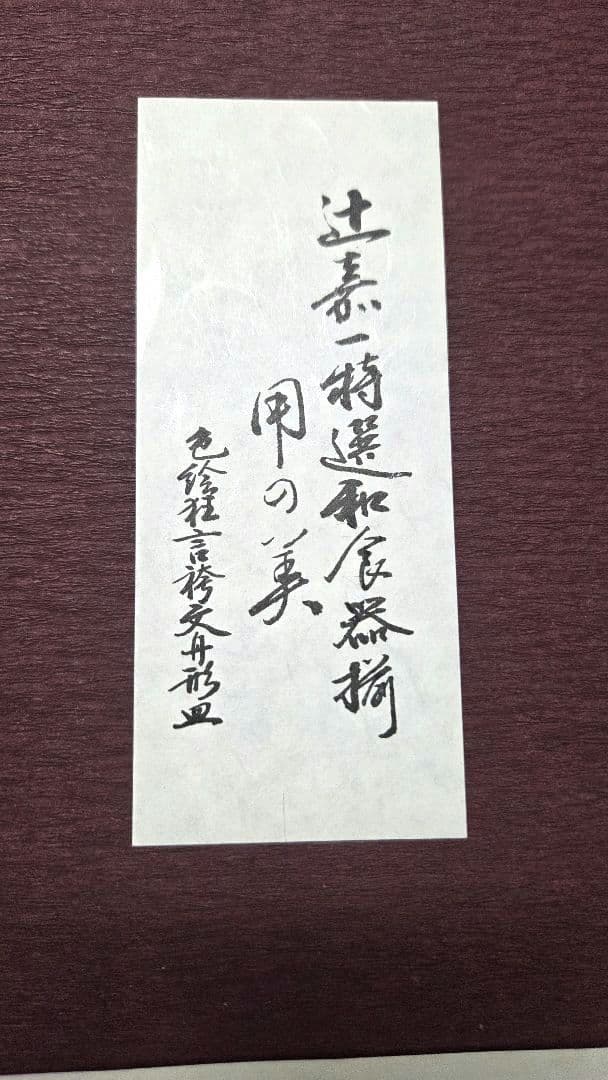 辻嘉一特選和食器揃
用の美
色絵狂言袴文丹形皿